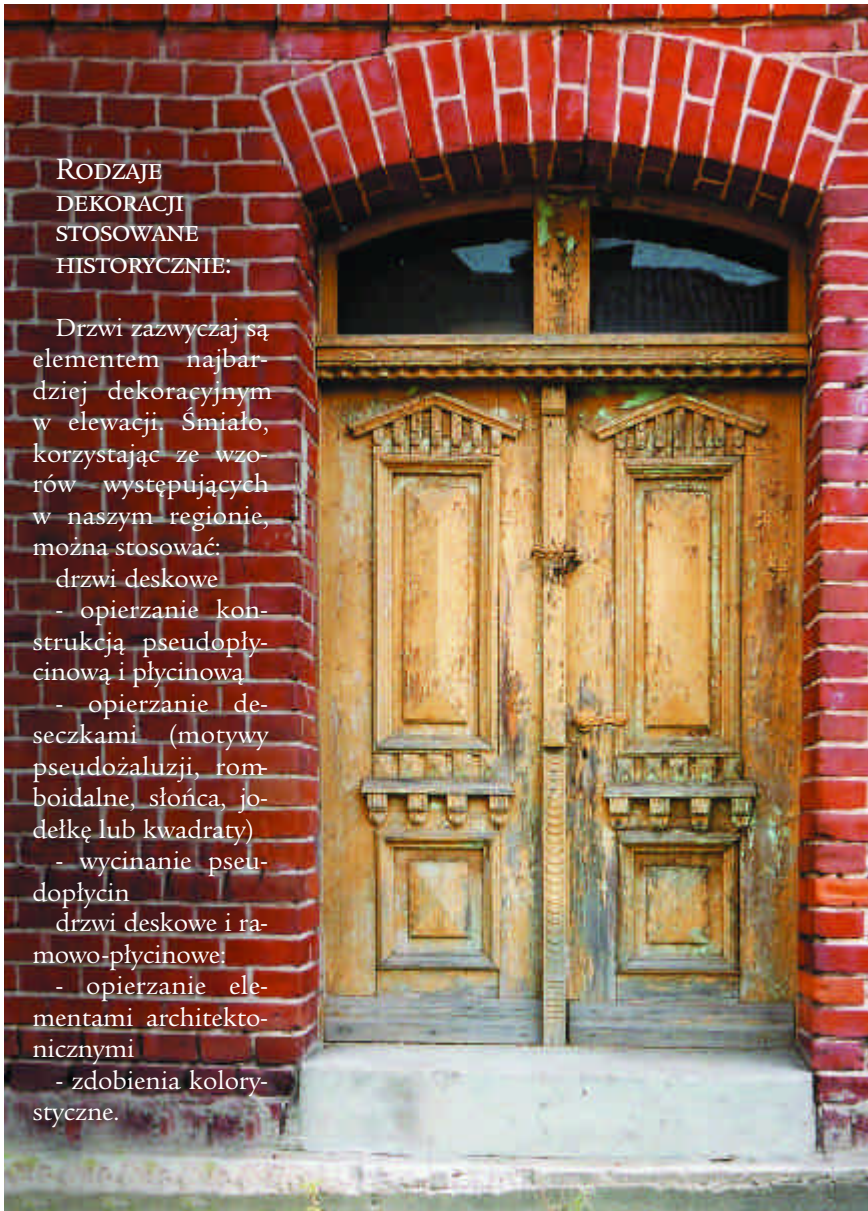 Rodzaje
dekoracji
stosowane
historycznie:
Drzwi zazwyczaj są
elementem najbar-
dziej dekoracyjnym
w elewacji. Śmiało,
korzystając ze wzo-
rów występujących
w naszym regionie,
można stosować:
drzwi deskowe
- opierzanie kon-
strukcją pseudopły-
cinową i płycinową
- opierzanie de-
seczkami (motywy
pseudożaluzji, rom-
boidalne, słońca, jo-
dełkę lub kwadraty)
- wycinanie pseu-
dopłycin
drzwi deskowe i ra-
mowo-płycinowe:
- opierzanie ele-
mentami architekto-
nicznymi
- zdobienia kolory-
styczne.